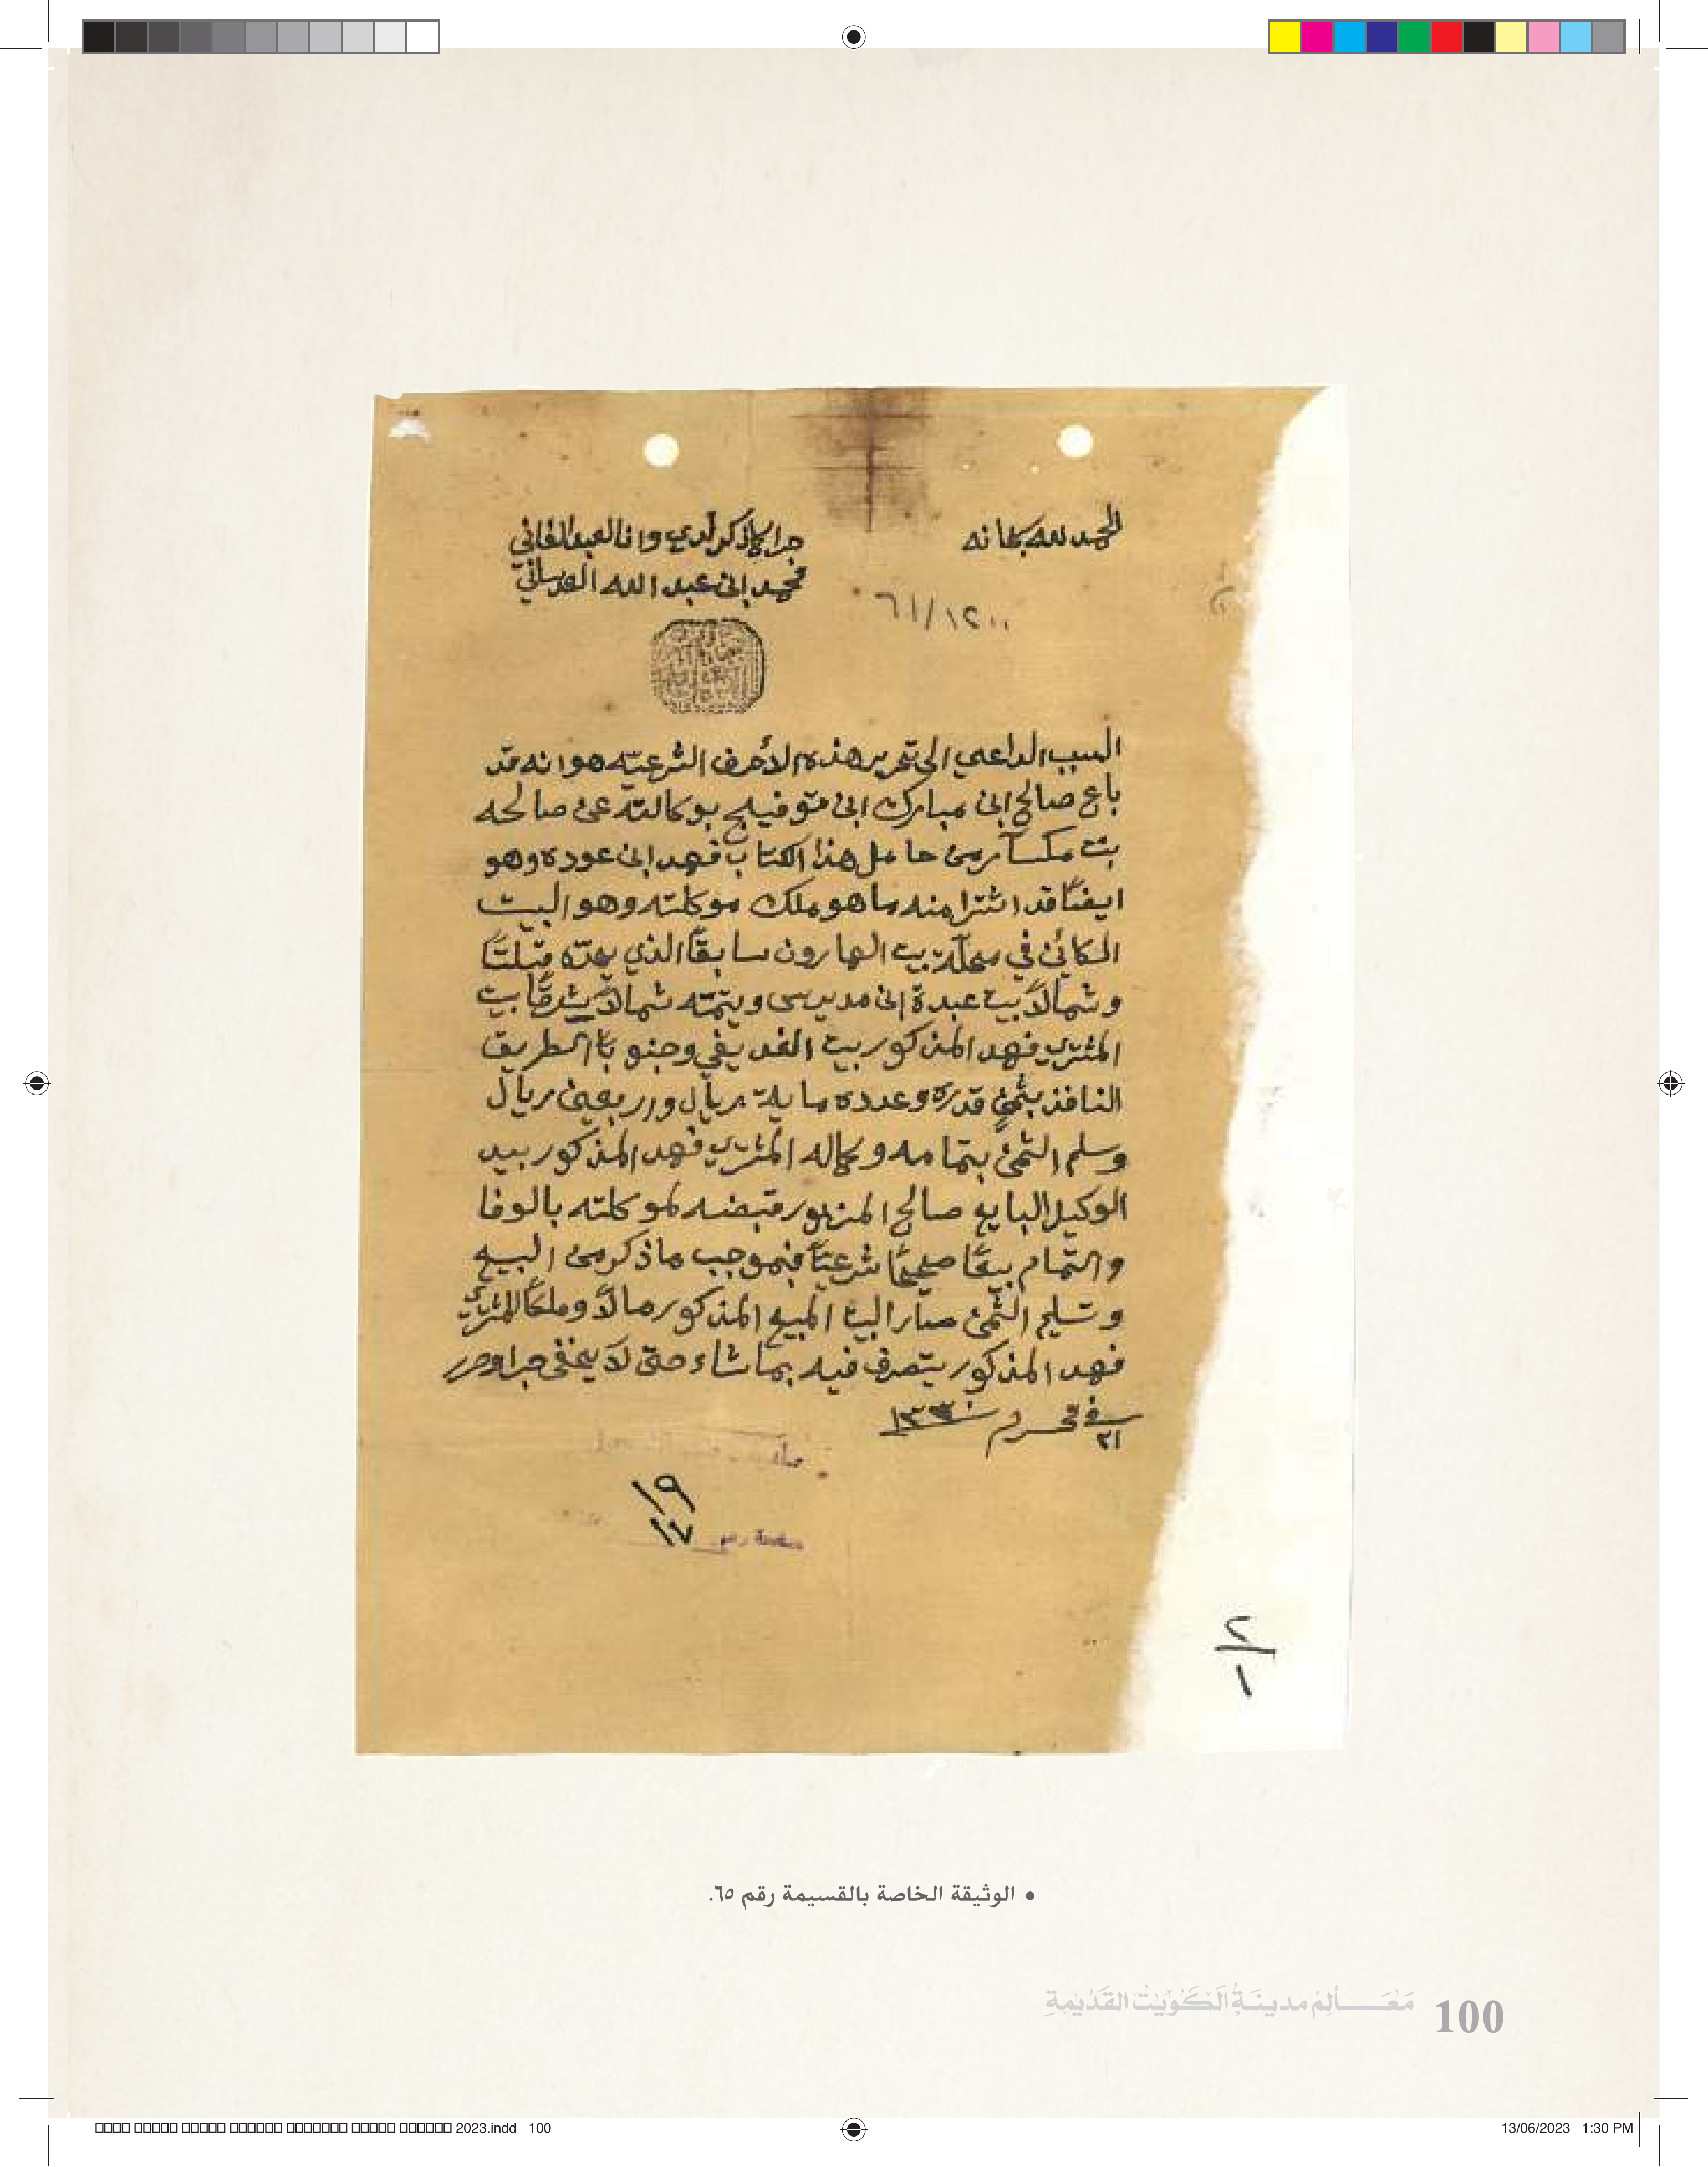 الحمد لله سبحانه
جرا ما ذكر لدي وانا العبد الفاني
محمد ابن عبد الله العدساني
٦١/١٢٠٠
السبب الداعي الى تحرير هذه الأحرف الشرعيّه هو انه قد
باع صالح ابن مبارك ابن متوفيج بوكالته عن صالحه
بنت من حامل هذا الكتاب فهد ابن عوده وهو
ايضًا قد اشترا منه ما هو ملك موكلته وهو البيت
الكائن في محلّة بيت الهارون سابقًا الذي يحدّه قبلتًا
وشمالاً بيت عبدة ابن مديرس ويتمّه شمالاً شرقًا بيت
المشتري فهد المذكور بيت الفديغي وجنوبًا الطريق
النافذ بثمنٍ قدره وعدده ماية ريال واربعين ريال
وسلم الثمن بتمامه وكماله المشتري فهد المذكور بيد
الوكيل البايع صالح المزبور قبضه لموكلته بالوفا
والتمام بيعًا صحيحًا شرعيًا فبموجب ما ذكر من البيع
وتسليم الثمن صار البيت المبيع المذكور مالاً وملكًا للمشتري
فهد المذكور يتصرف فيه بما شاء حتى لا يخفى جرا وحرر
في ٢١ محرم ١٣٣٠
١٩
صفحة رقم ١٧
٢/١
• الوثيقة الخاصة بالقسيمة رقم ٦٥.
مَعَـــالِمُ مدينَـةِ الكُوَيْتِ القَدِيمَةِ 100
2023.indd 100
13/06/2023 1:30 PM